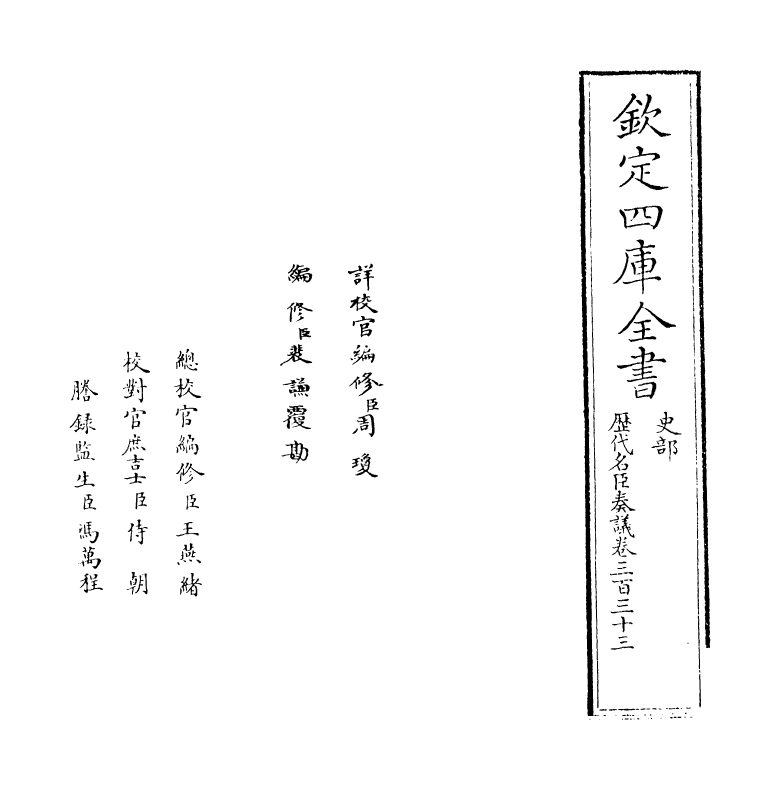 欽定四庫全書
史部
歴代名臣奏議卷三百三十三
詳校官編修臣周瓊
編修臣裴謙覆勘
總校官編修臣王燕緒
校對官庶吉士臣侍朝
謄録監生臣馮萬程